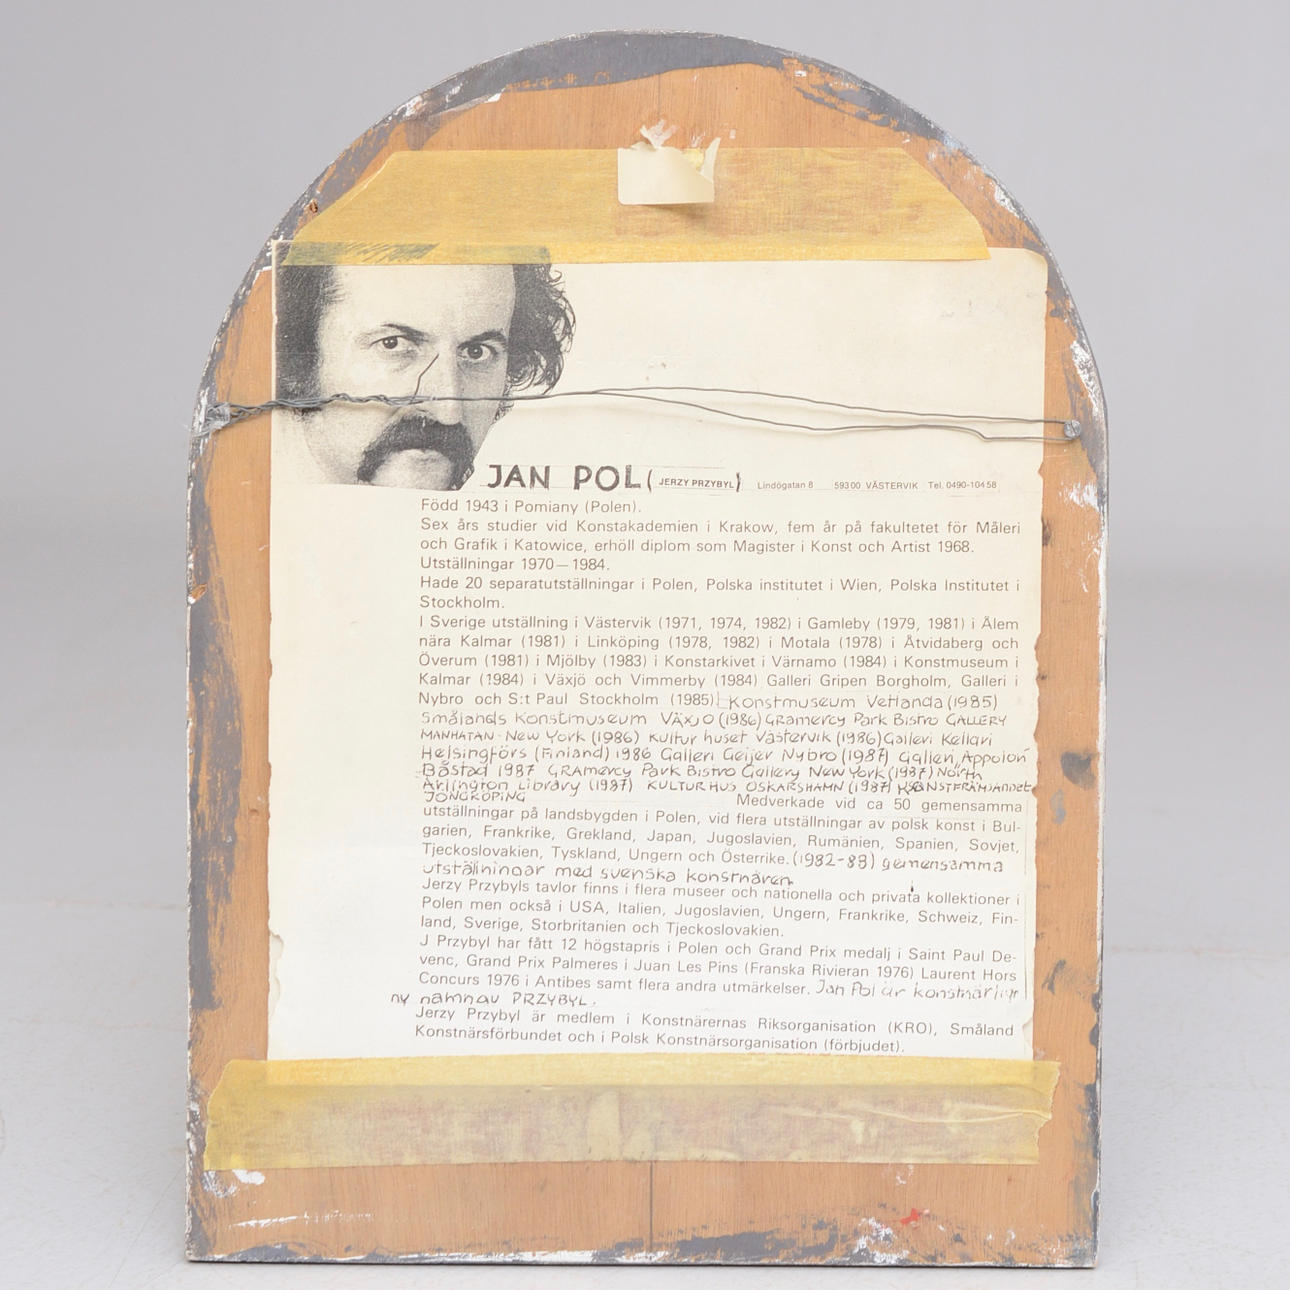 JAN POL (JERZY PRZYBYL) Lindögatan 8 593 00 VÄSTERVIK Tel. 0490-104 58
Född 1943 i Pomiany (Polen).
Sex års studier vid Konstakademien i Krakow, fem år på fakultetet för Måleri
och Grafik i Katowice, erhöll diplom som Magister i Konst och Artist 1968.
Utställningar 1970—1984.
Hade 20 separatutställningar i Polen, Polska institutet i Wien, Polska Institutet i
Stockholm.
I Sverige utställning i Västervik (1971, 1974, 1982) i Gamleby (1979, 1981) i Ålem
nära Kalmar (1981) i Linköping (1978, 1982) i Motala (1978) i Åtvidaberg och
Överum (1981) i Mjölby (1983) i Konstarkivet i Värnamo (1984) i Konstmuseum i
Kalmar (1984) i Växjö och Vimmerby (1984) Galleri Gripen Borgholm, Galleri i
Nybro och S:t Paul Stockholm (1985) Konstmuseum Vetlanda (1985)
Smålands Konstmuseum VÄXJÖ (1986) Gramercy Park Bistro GALLERY
MANHATAN - New York (1986) Kultur huset Västervik (1986) Galleri Kellari
Helsingförs (Finland) 1986 Galleri Geijer Nybro (1987) Galleri Appolon
Båstad 1987 GRAMERCY Park Bistro Gallery New York (1987) North
Arlington Library (1987) KULTURHUS OSKARSHAMN (1987) KONSTFRÄMJANDET
JÖNGKÖPING Medverkade vid ca 50 gemensamma
utställningar på landsbygden i Polen, vid flera utställningar av polsk konst i Bul-
garien, Frankrike, Grekland, Japan, Jugoslavien, Rumänien, Spanien, Sovjet,
Tjeckoslovakien, Tyskland, Ungern och Österrike. (1982-88) gemensamma
utställningar med svenska konstnären.
Jerzy Przybyls tavlor finns i flera museer och nationella och privata kollektioner i
Polen men också i USA, Italien, Jugoslavien, Ungern, Frankrike, Schweiz, Fin-
land, Sverige, Storbritanien och Tjeckoslovakien.
J Przybyl har fått 12 högstapris i Polen och Grand Prix medalj i Saint Paul De-
venc, Grand Prix Palmeres i Juan Les Pins (Franska Rivieran 1976) Laurent Hors
Concurs 1976 i Antibes samt flera andra utmärkelser. Jan Pol är konstnärligt
ny namn av PRZYBYL.
Jerzy Przybyl är medlem i Konstnärernas Riksorganisation (KRO), Småland
Konstnärsförbundet och i Polsk Konstnärsorganisation (förbjudet).